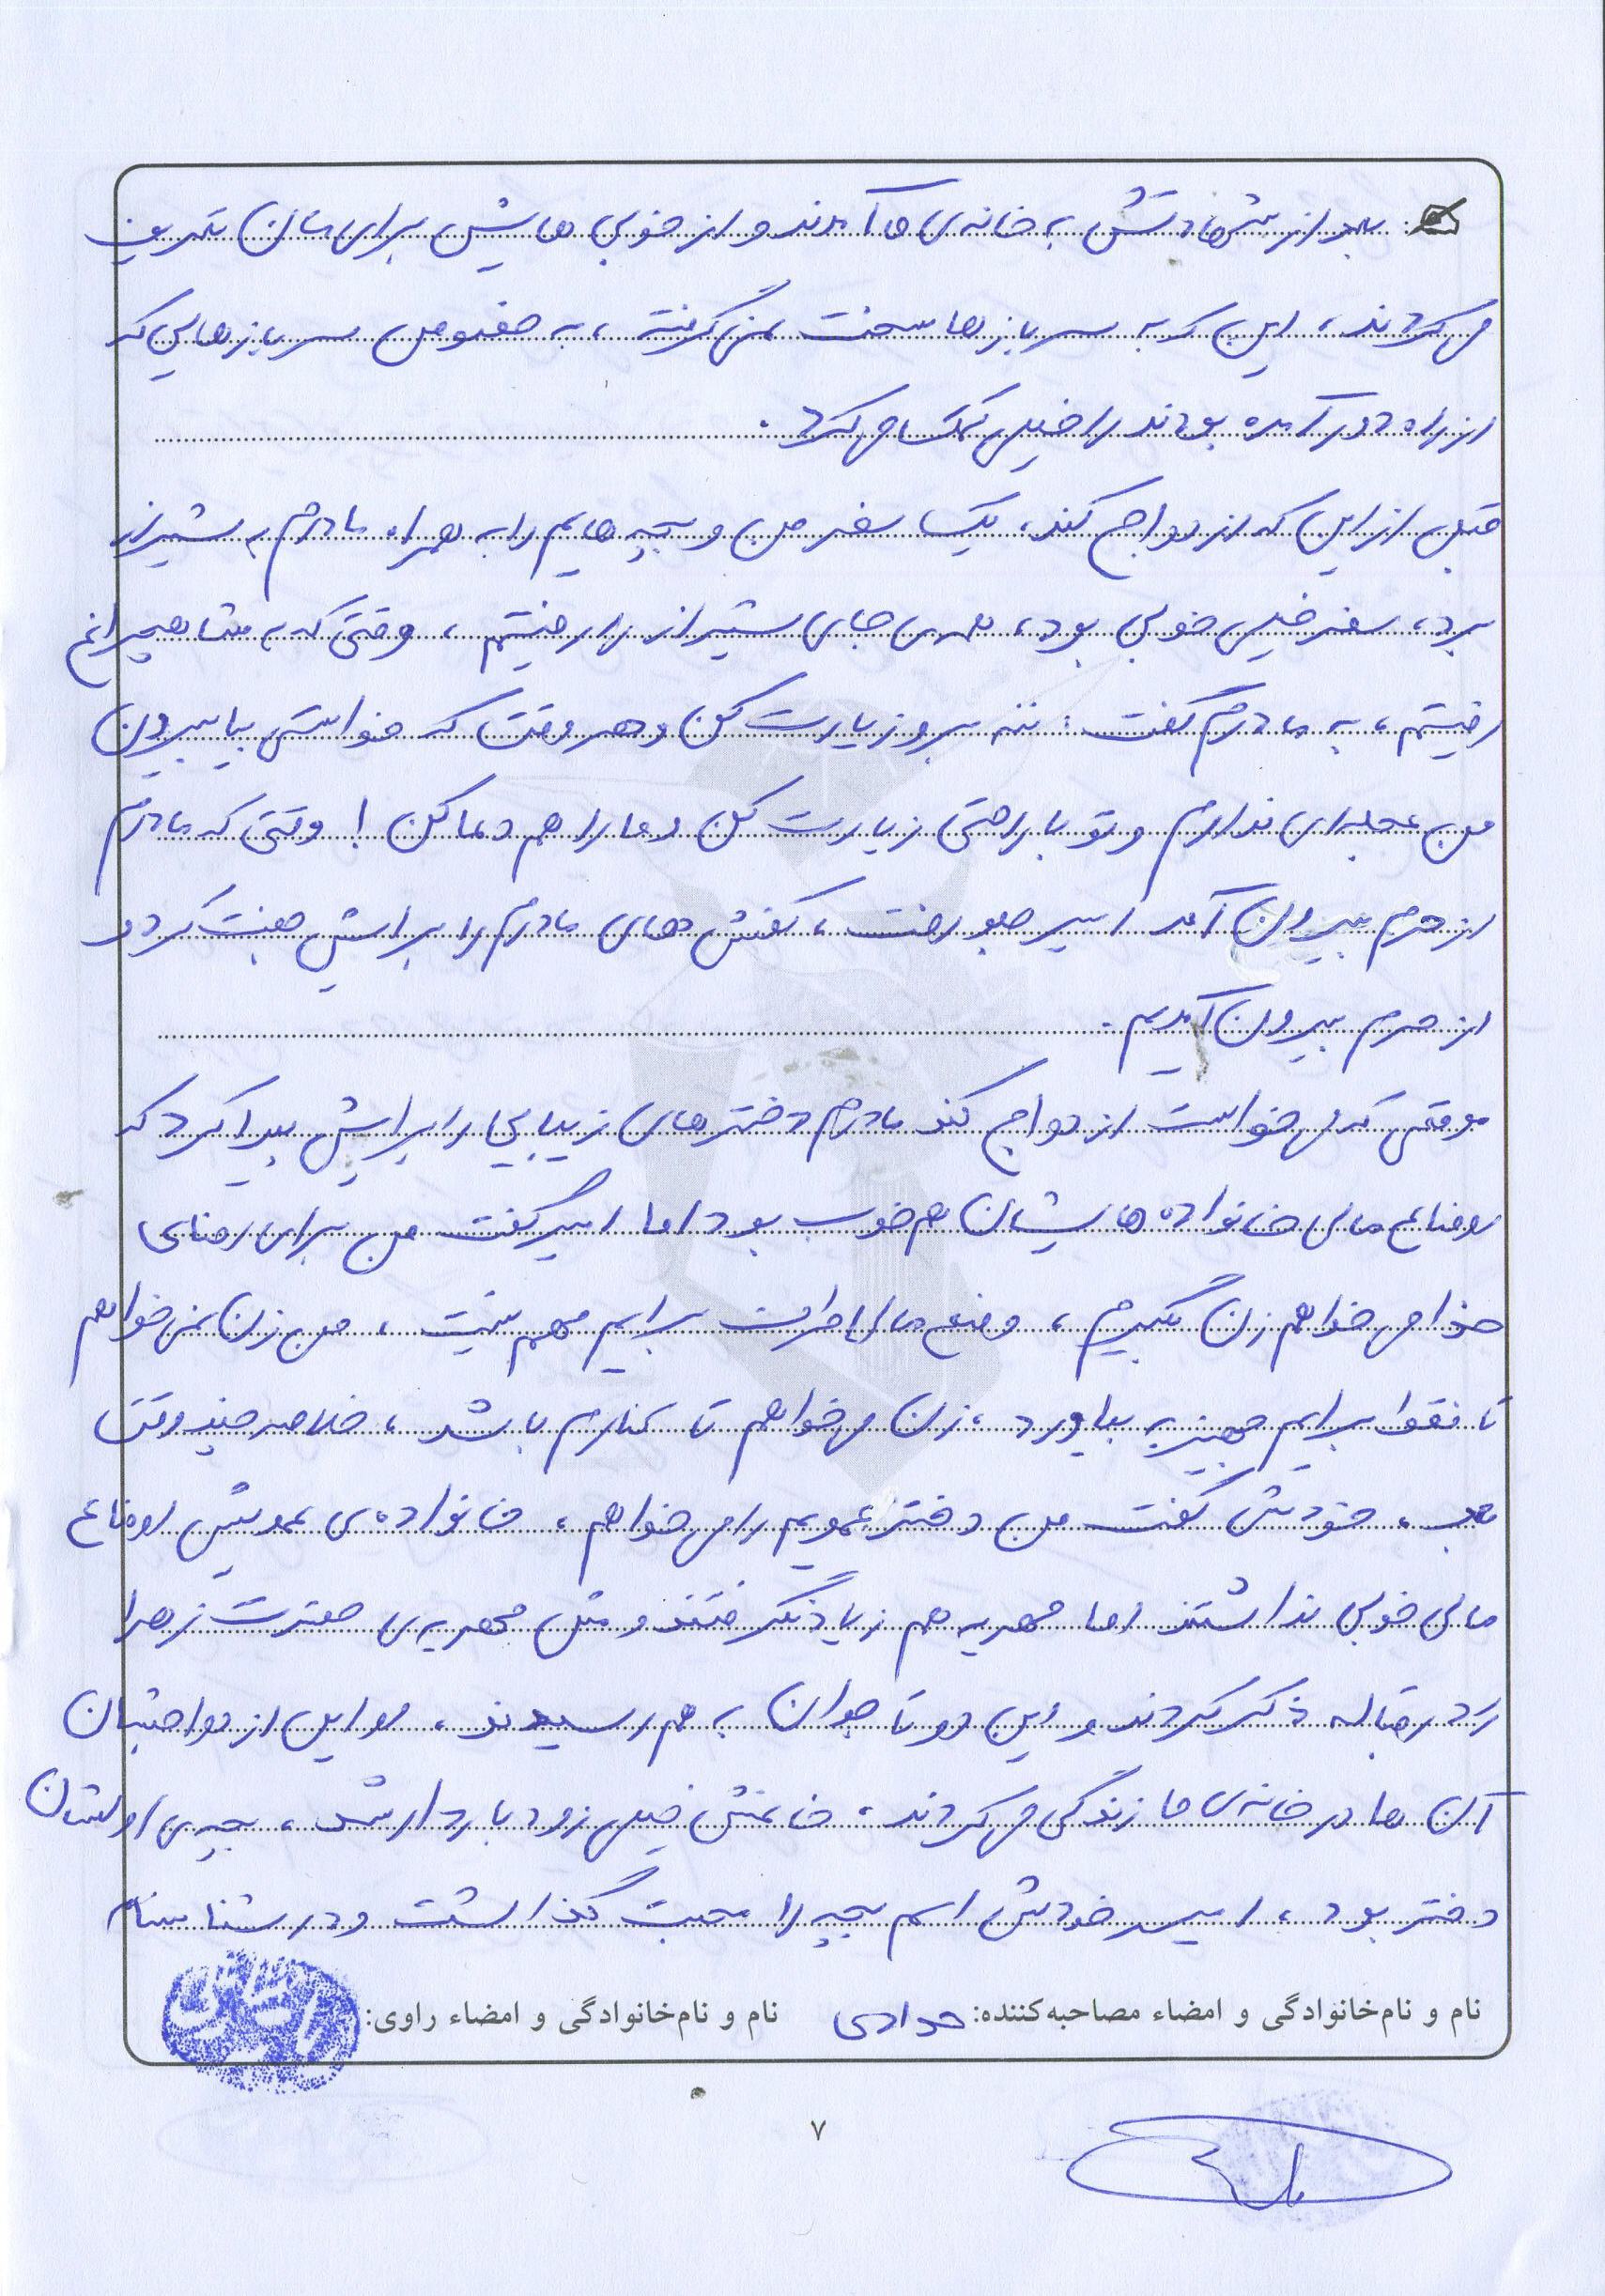 بعد از شهادتش به خانه‌ی ما آمدند و از خوبی هایش برای مان تعریف
می کردند، این که به سربازها سخت نمی گرفت، به خصوص سربازهایی که
از راه دور آمده بودند را خیلی کمک می کرد.
قبل از این که ازدواج کند، یک سفر من و بچه هایم را به همراه مادرم به شیراز
برد، سفر خیلی خوبی بود، همه‌ی جای شیراز را رفتیم، وقتی که به شاهچراغ
رفتیم، به مادرم گفت: ننه برو زیارت کن و هر وقت که خواستی بیا بیرون
من عجله‌ای ندارم و تو با راحتی زیارت کن و ما را هم دعا کن! وقتی که مادرم
از حرم بیرون آمد امیر جلو رفت، کفش های مادرم را برایش جفت کرد و
از حرم بیرون آمدیم.
موقعی که می خواست ازدواج کند مادرم دخترهای زیبایی را برایش پیدا کرد که
اوضاع مالی خانواده هایشان هم خوب بود اما امیر گفت من برای رضای
خدا می خواهم زن بگیرم، وضع مالی طرف برایم مهم نیست، من زن نمی خواهم
تا فقط برایم جهیزیه بیاورد، زن می خواهم تا کنارم باشد، خلاصه چند وقت
بعد، خودش گفت من دختر عمویم را می خواهم، خانواده‌ی عمویش اوضاع
مالی خوبی نداشتند اما مهریه هم زیاد نگرفتند و مثل مهریه‌ی حضرت زهرا
در قباله ذکر کردند و این دو تا جوان به هم رسیدند، اوایل ازدواجشان
آن ها در خانه‌ی ما زندگی می کردند، خانمش خیلی زود باردار شد، بچه‌ی اولشان
دختر بود، امیر خودش اسم بچه را محبت گذاشت و در شناسنامه
نام و نام‌خانوادگی و امضاء مصاحبه‌کننده: نام و نام‌خانوادگی و امضاء راوی:
۷